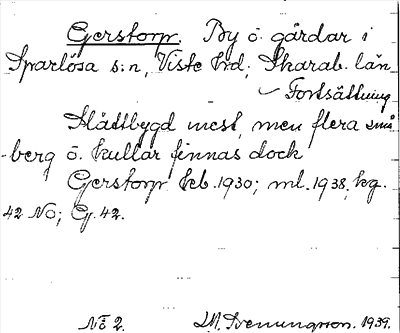 Gerstorp. By o. gårdar i
Sparlösa s:n, Viste hd; Skarab. län
Fortsättning
Slättbygd mest, men flera små
-berg o. kullar finnas dock
Gerstorp kb. 1930; ml. 1938, kg.
42 NO; G. 42.
No 2. Sveningson. 1939.